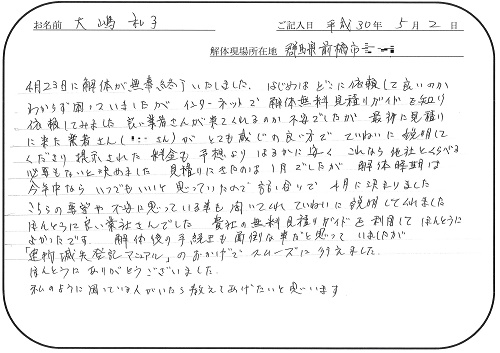 お名前 大嶋 礼子 ご記入日 平成30年 5月 2日
解体現場所在地 群馬県前橋市
4月23日に解体が無事終了いたしました. はじめは どこに依頼して良いのか
わからず困っていましたが インターネットで 解体無料見積りガイドを知り
依頼してみました 良い業者さんが来てくれるのか不安でしたが 最初に見積り
に来た業者さん( さん)が とても感じの良い方で ていねいに説明して
くださり 提示された 料金も 予想より はるかに安く これなら他社とくらべる
必要もないと決めました 見積りにきたのは 1月でしたが 解体時期は
今年中なら いつでもいいと思っていたので 話し合いで 4月に決まりました
こちらの要望や 不安に思っている事も 聞いてくれ ていねいに説明してくれました
ほんとうに良い業社さんでした 貴社の無料見積りガイドを利用して ほんとうに
よかったです. 解体後の手続きも 面倒な事だと思って いましたが
「建物滅失登記マニュアル」の おかげで スムーズに 行えました.
ほんとうに ありがとうございました.
私のように困っている人がいたら教えてあげたいと思います